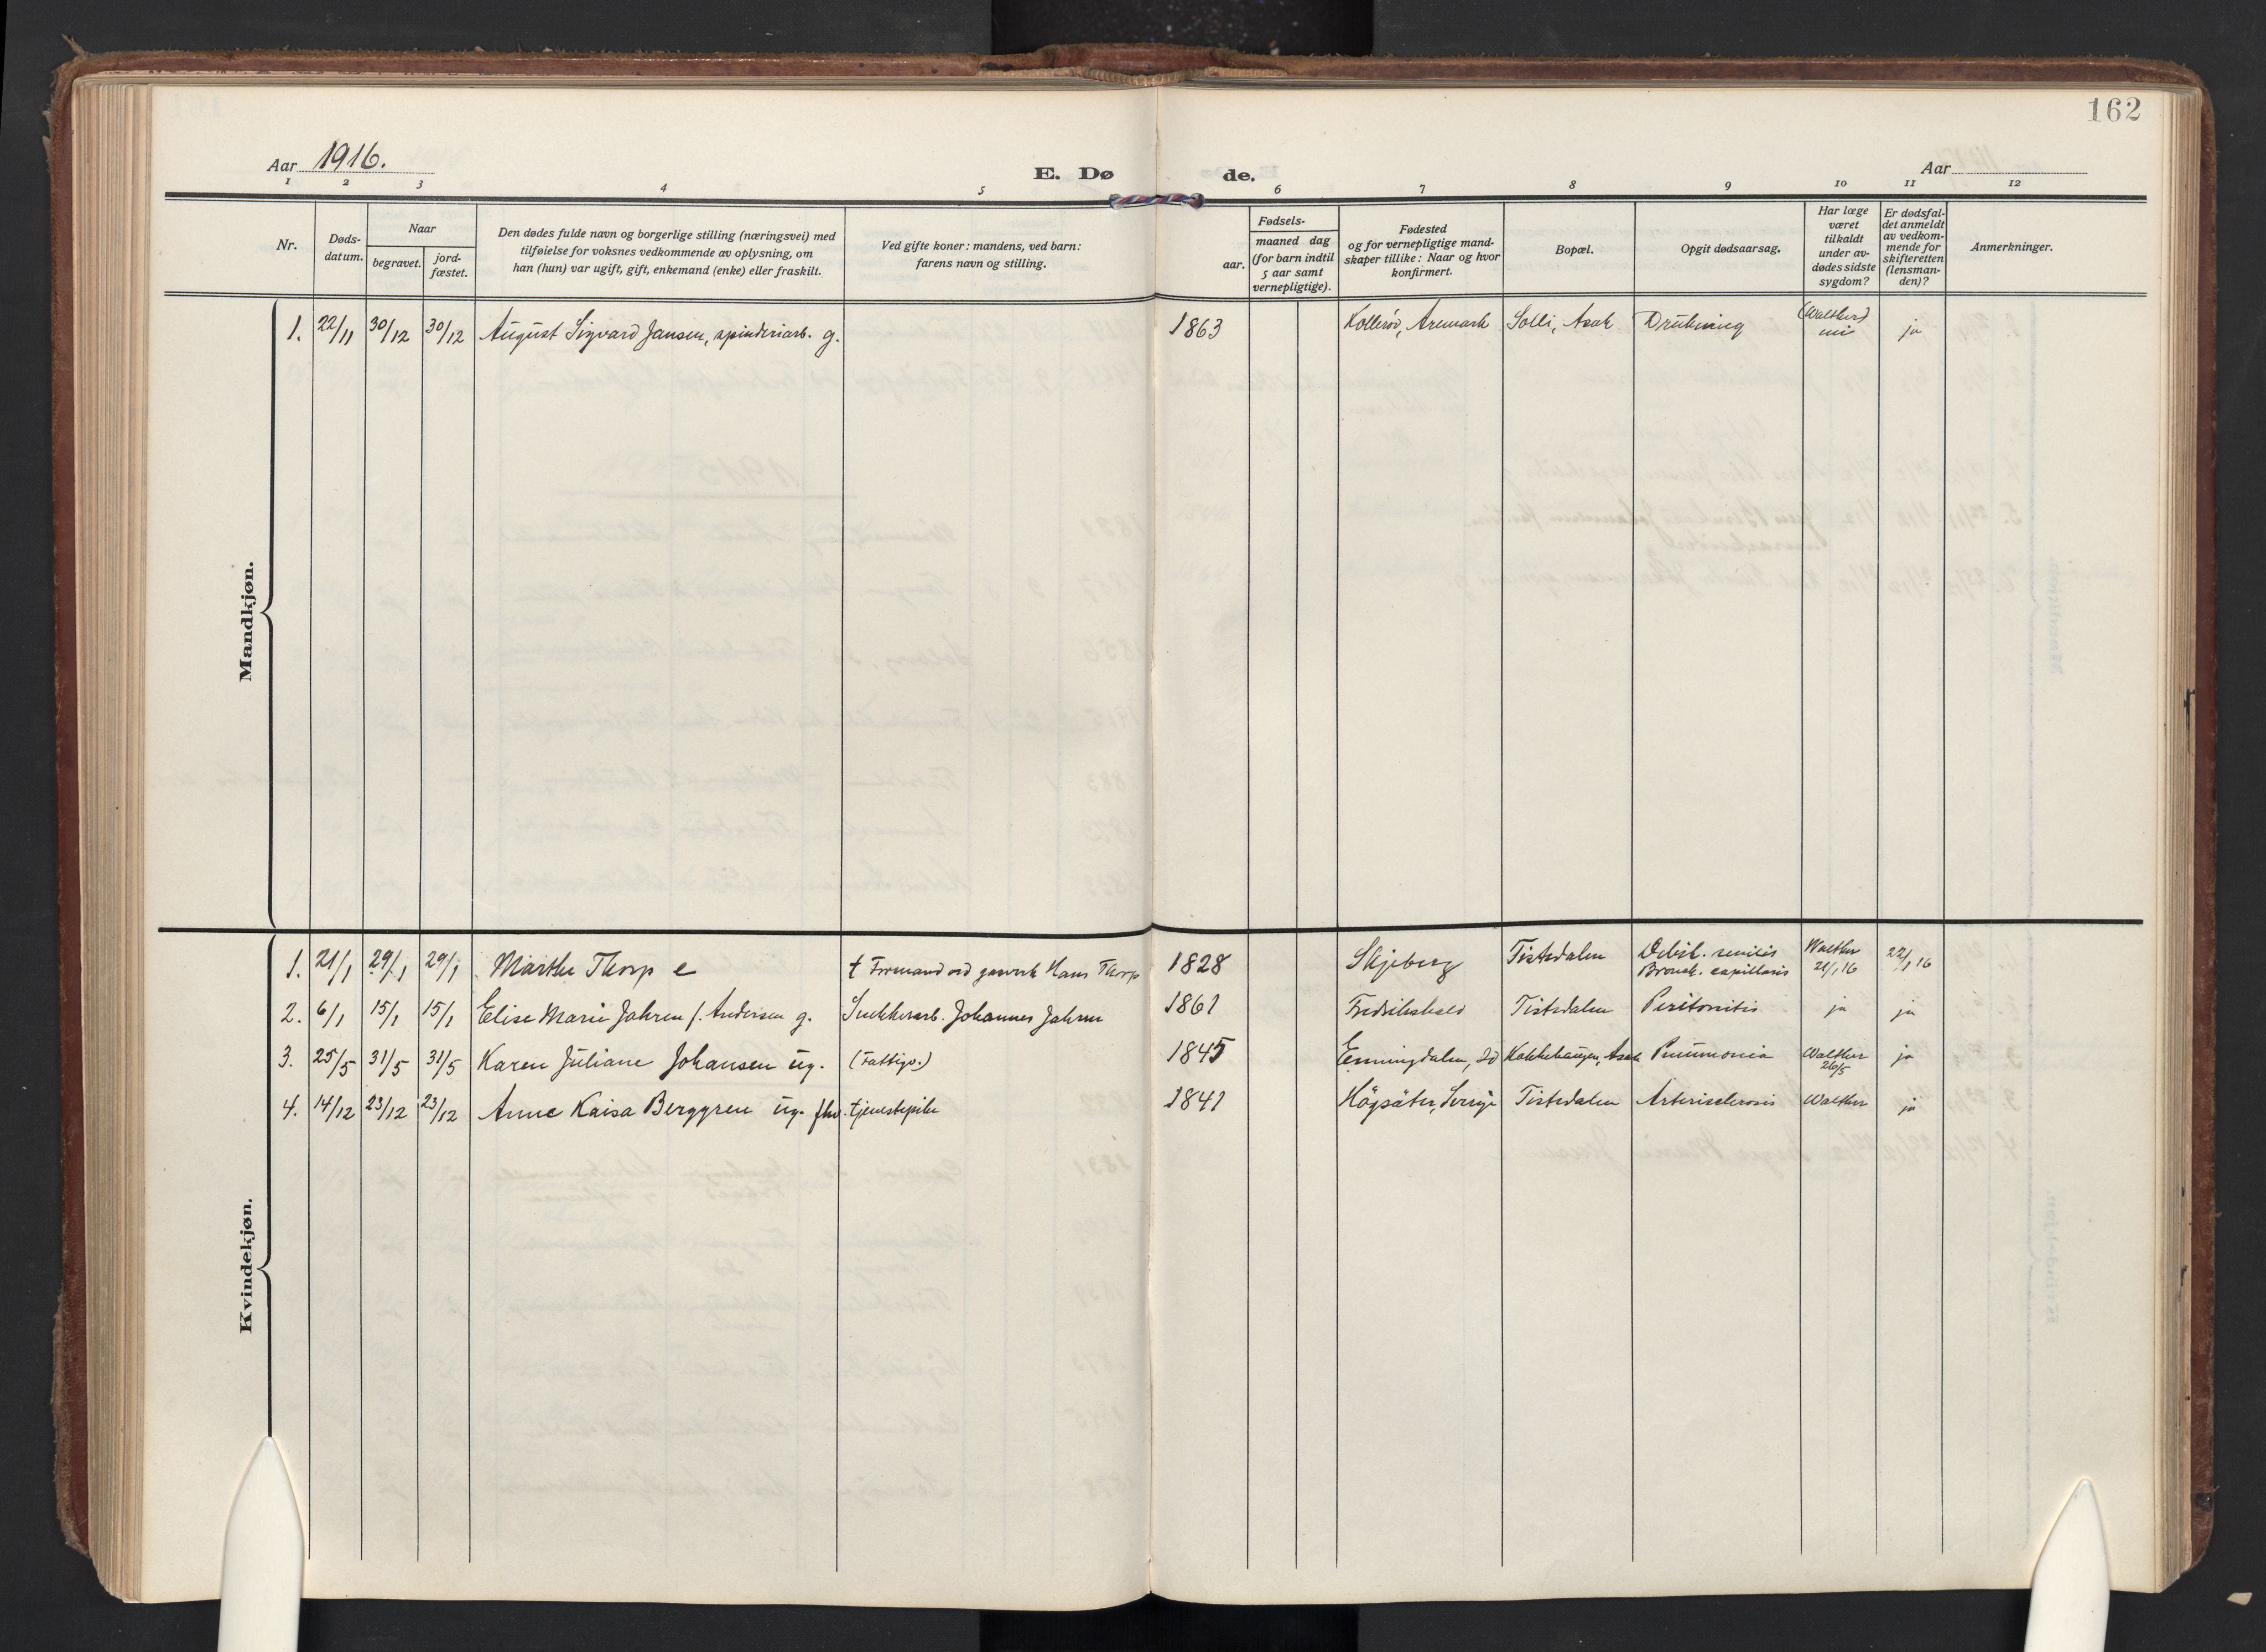 162
Aar 1916.
E. Dø
de.
Aar
1 2 3 4 5 6 7 8 9 10 11 12
Nr.
Døds-
datum.
Naar
begravet.
jord-
fæstet.
Den dødes fulde navn og borgerlige stilling (næringsvei) med
tilføielse for voksnes vedkommende av oplysning, om
han (hun) var ugift, gift, enkemand (enke) eller fraskilt.
Ved gifte koner: mandens, ved barn:
farens navn og stilling.
Fødsels-
aar.
maaned dag
(for barn indtil
5 aar samt
vernepligtige).
Fødested
og for vernepligtige mand-
skaper tillike: Naar og hvor
konfirmert.
Bopæl.
Opgit dødsaarsag.
Har læge
været
tilkaldt
under av-
dødes sidste
sygdom?
Er dødsfal-
det anmeldt
av vedkom-
mende for
skifteretten
(lensman-
den)?
Anmerkninger.
Mandkjøn.
1. 22/11 30/12 30/12 August Sigvard Jansen, spinderiarb. g. 1863 Kollerød, Aremark Solli, Asak Drukning (Walther) nei ja
Kvindekjøn.
1. 21/1 29/1 29/1 Marthe Thorp e † Formand ved gasverk Hans Thorp 1828 Skjeberg Tistedalen Debil. senilis Walther 22/1 16
Bronch. capillaris 21/1 16
2. 6/1 15/1 15/1 Elise Marie Jahren f. Andersen g. Snekkerarb. Johannes Jahren 1861 Fredrikshald Tistedalen Peritonitis ja ja
3. 25/5 31/5 31/5 Karen Juliane Johansen ug. (Fattigv.) 1845 Enningdalen, Id Kokkehaugen, Asak Pneumonia Walther ja
26/5
4. 14/12 23/12 23/12 Anne Kaisa Berggren ug. fhv. tjenestepike 1841 Högsäter, Sverige Tistedalen Arteriosclerosis Walther ja